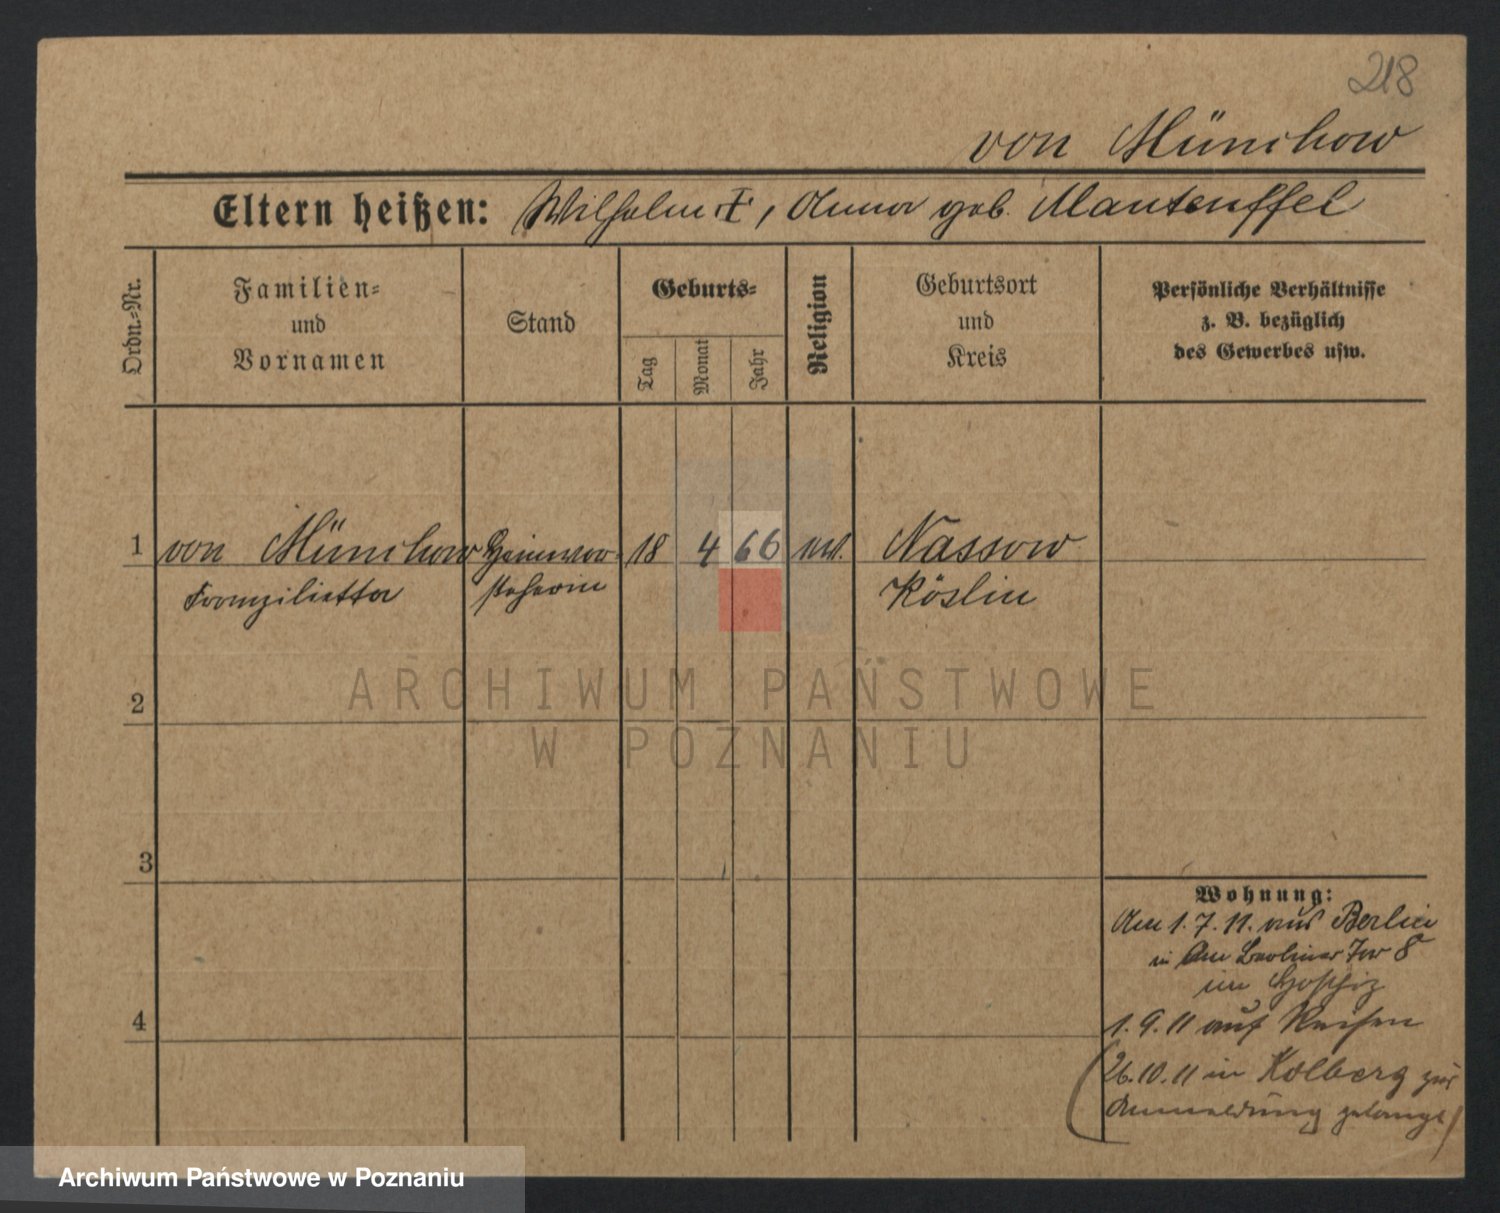 218
von Münchow
Eltern heißen: Wilhelm †, Anna geb. Manteuffel
Ordn.-Nr.
Familien-
und
Vornamen
Stand
Geburts-
Tag
Monat
Jahr
Religion
Geburtsort
und
Kreis
Persönliche Verhältnisse
z. B. bezüglich
des Gewerbes usw.
1 von Münchow Heimvor- 18 4 66 Nassow
steherin Köslin
2
3
4
Wohnung:
Am 1.7.11. aus Berlin
in Am Berliner Tor 8
im Hospiz
1.9.11 auf Reisen
(26.10.11 in Kolberg zur
Anmeldung gelangt)
ARCHIWUM PAŃSTWOWE
W POZNANIU
Archiwum Państwowe w Poznaniu